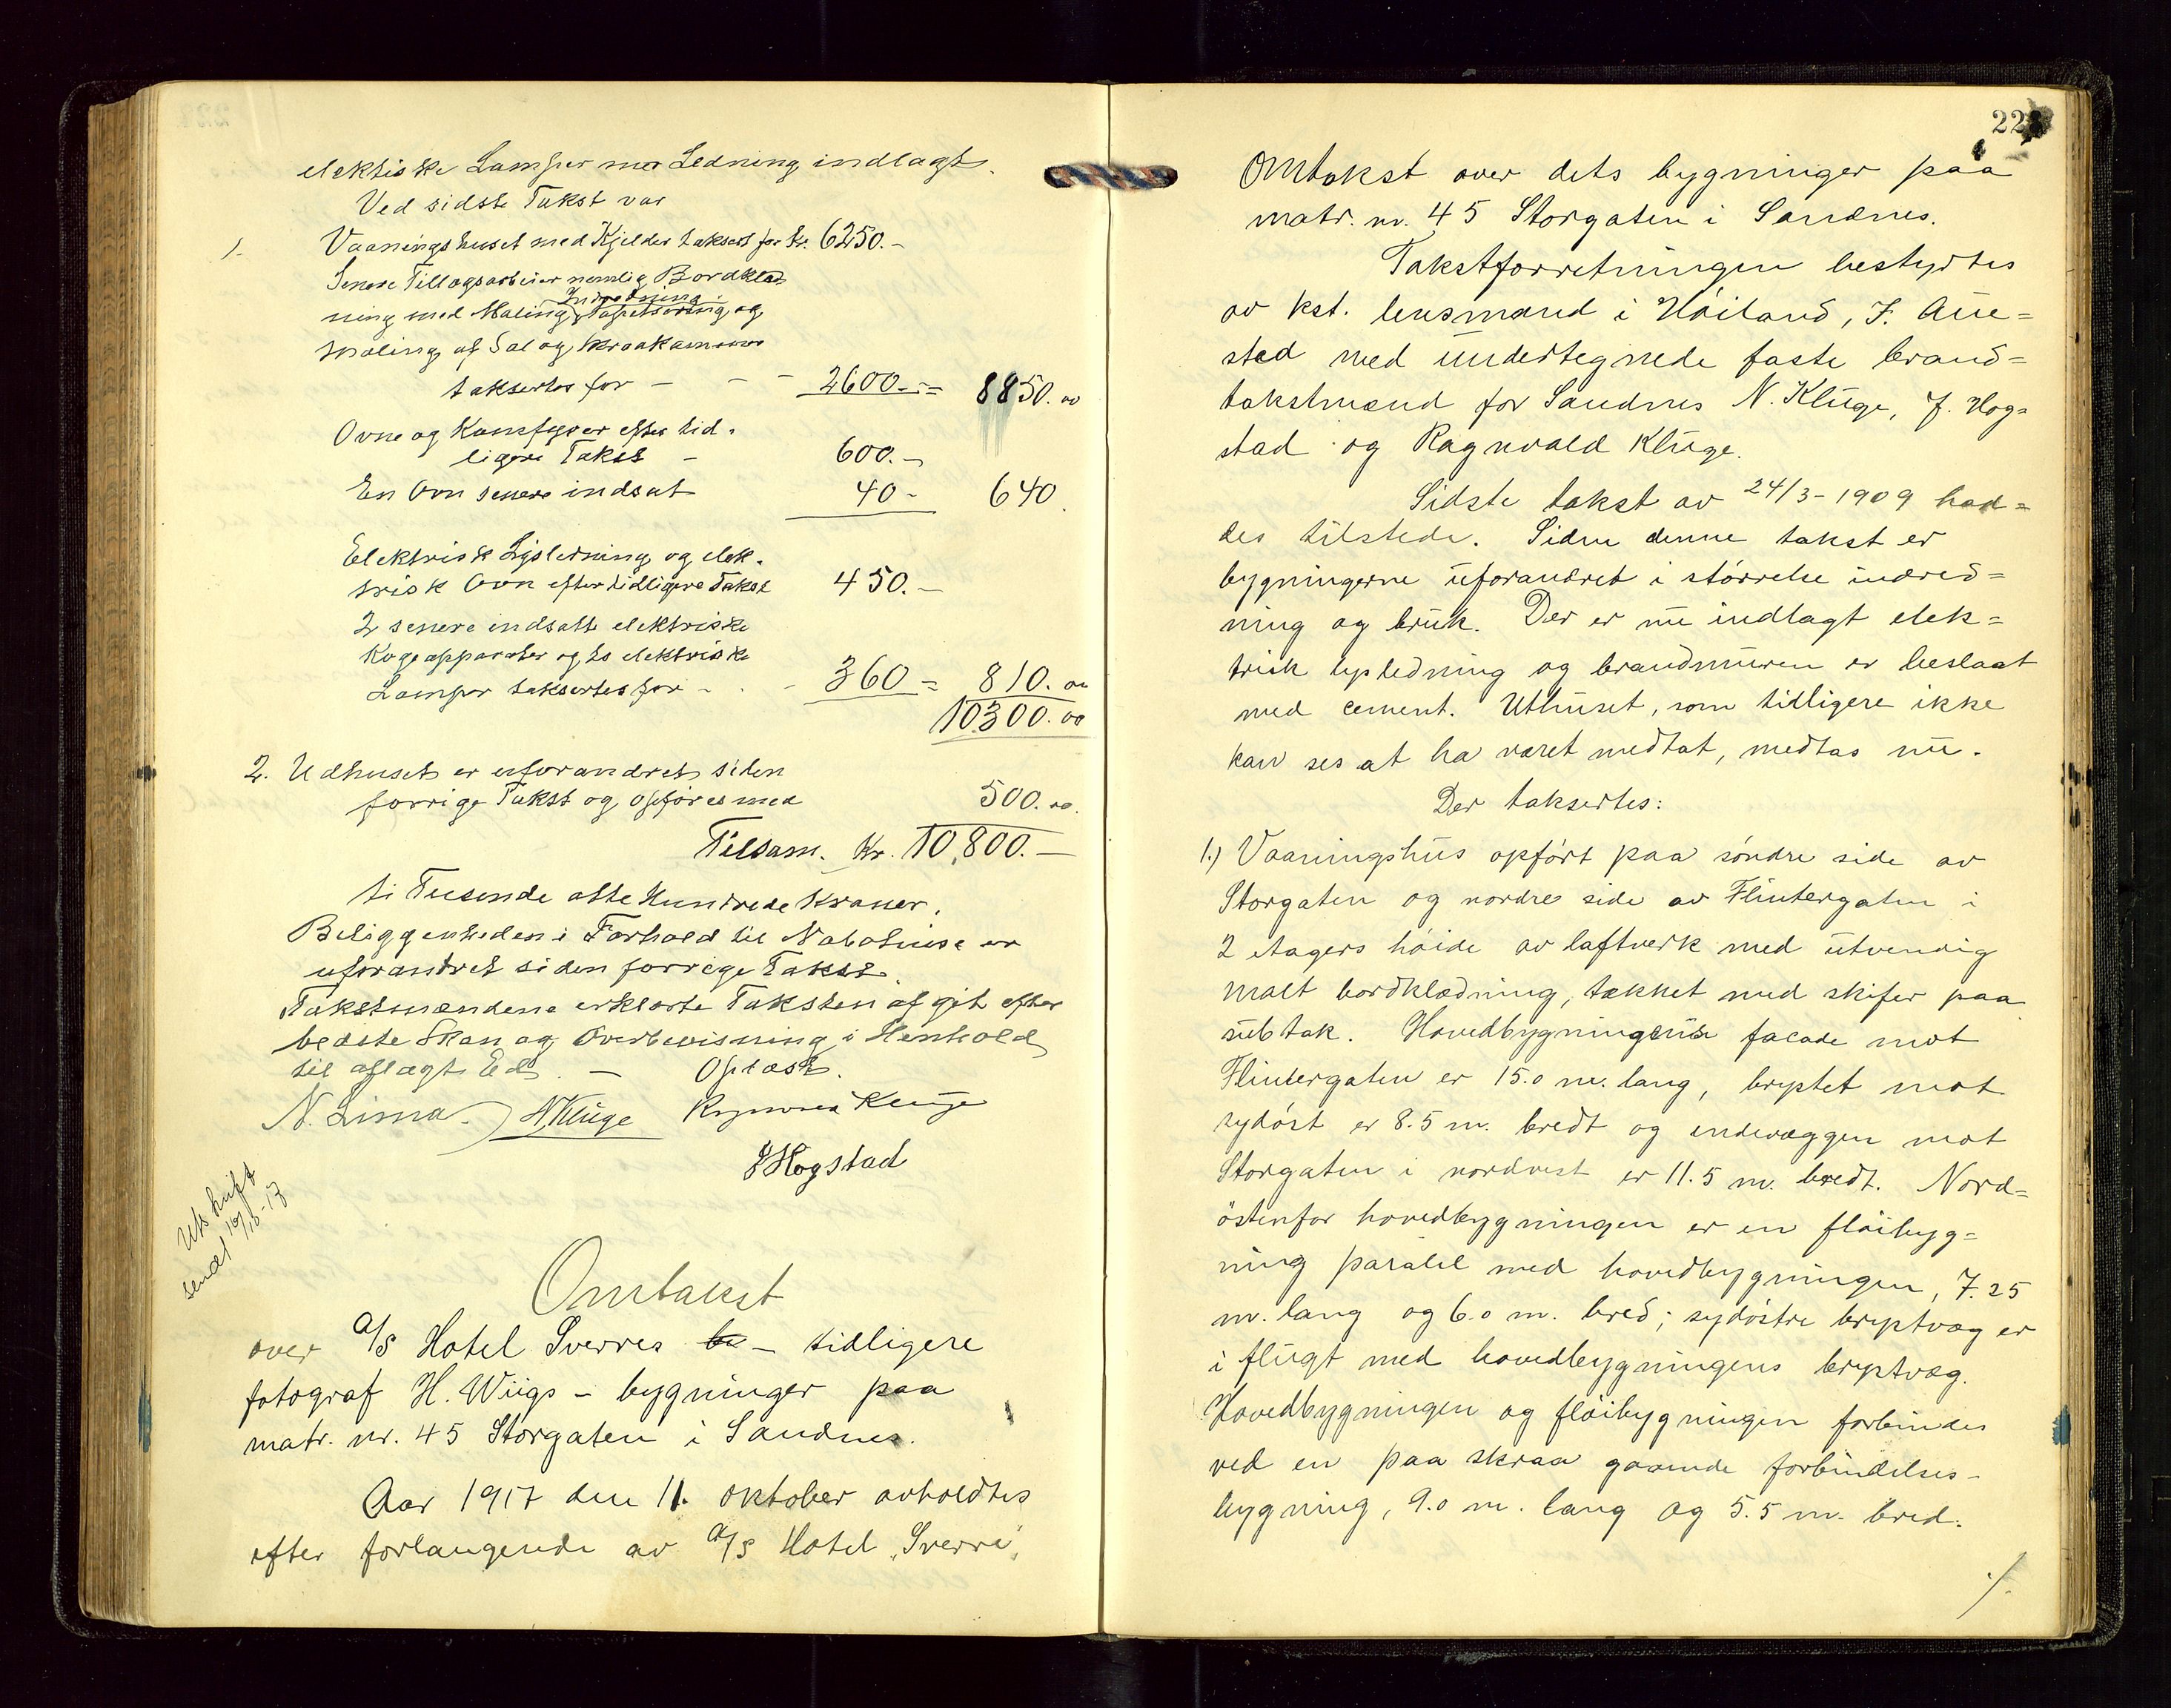 elektriske Lamper med Ledning indlagt.
Ved sidste Takst var
1. Vaaningshuset med Kjelder taksert for Kr. 6250.-
Senere Tillægsarbeider nemlig Bordklæd
Indredning
ning med Maling, Tapetsering og
Maling af Sal og Kraakammer
taksertes for - - - 2600.- = 8850.00
Ovne og Komfyrer efter tid-
ligere Takst - 600.-
En Ovn senere indsat 40- 640.
Elektrisk Lysledning og elek-
trisk Ovn efter tidligere Takst 450.-
2 senere indsatte elektriske
Kogeapparater og to elektriske
Lamper taksertes for - - 360 = 810.00
10300.00
2. Udhuset er uforandret siden
forrige Takst og opføres med 500.00.
Tilsam. Kr. 10,800.-
ti Tusende otte Hundrede Kroner.
Beliggenheden i Forhold til Nabohuse er
uforandret siden forrige Takst.
Takstmændene erklærte Taksten afgit efter
bedste Skøn og Overbevisning i Henhold
til aflagt Ed. - Oplæst.
N. Lima. N. Kluge Ragnvald Kluge
J Hogstad
Utskrift
sendt 19/10-17
Omtakst
over A/S Hotel Sverres be - tidligere
fotograf H. Wiigs - bygninger paa
matr. nr. 45 Storgaten i Sandnes.
Aar 1917 den 11. oktober avholdtes
efter forlangende av A/S Hotel „Sverre"
223
omtakst over dets bygninger paa
matr. nr. 45 Storgaten i Sandnes.
Takstforretningen bestyrtes
av kst. lensmand i Høiland, J. Aue=
stad med undertegnede faste brand=
takstmænd for Sandnes N. Kluge, J. Hog=
stad og Ragnvald Kluge.
Sidste takst av 24/3-1909 had=
des tilstede. Siden denne takst er
bygningerne uforandret i størrelse indred=
ning og bruk. Der er nu indlagt elek=
trisk lysledning og brandmuren er beslaat
med cement. Uthuset, som tidligere ikke
kan ses at ha været medtat, medtas nu.
Der taksertes:
1.) Vaaningshus opført paa søndre side av
Storgaten og nordre side av Flintergaten i
2 etagers høide av laftverk med utvendig
malt bordklædning, tækket med skifer paa
subtak. Hovedbygningens facade mot
Flintergaten er 15.0 m. lang, brystet mot
sydøst er 8.5 m. bredt og endevæggen mot
Storgaten i nordvest er 11.5 m. bredt. Nord=
østenfor hovedbygningen er en fløibyg=
ning paralel med hovedbygningen, 7.25
m. lang og 6.0 m. bred; sydøstre brystvæg er
i flugt med hovedbygningens brystvæg.
Hovedbygningen og fløibygningen forbindes
ved en paa skraa gaaende forbindelses-
bygning, 9.0 m. lang og 5.5 m. bred.
./.